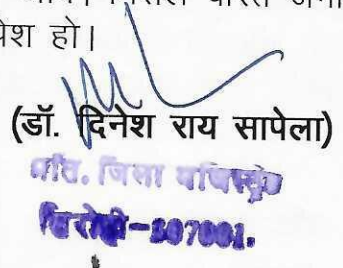 पेश हो।
(डॉ. दिनेश राय सापेला)
अति. जिला मजिस्ट्रेट
सिरोही-307001.